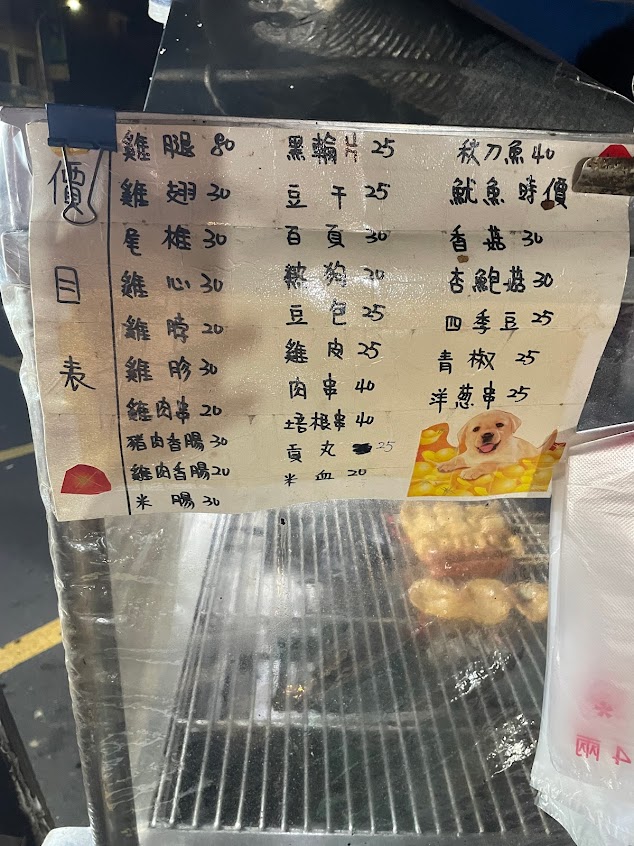 價目表
雞腿 80
雞翅 30
尾椎 30
雞心 30
雞脖 20
雞胗 30
雞肉串 20
豬肉香腸 30
雞肉香腸 20
米腸 30
黑輪片 25
豆干 25
百頁 30
熱狗 20
豆包 25
雞皮 25
肉串 40
培根串 40
貢丸 25
米血 20
秋刀魚 40
魷魚 時價
香菇 30
杏鮑菇 30
四季豆 25
青椒 25
洋蔥串 25
4兩